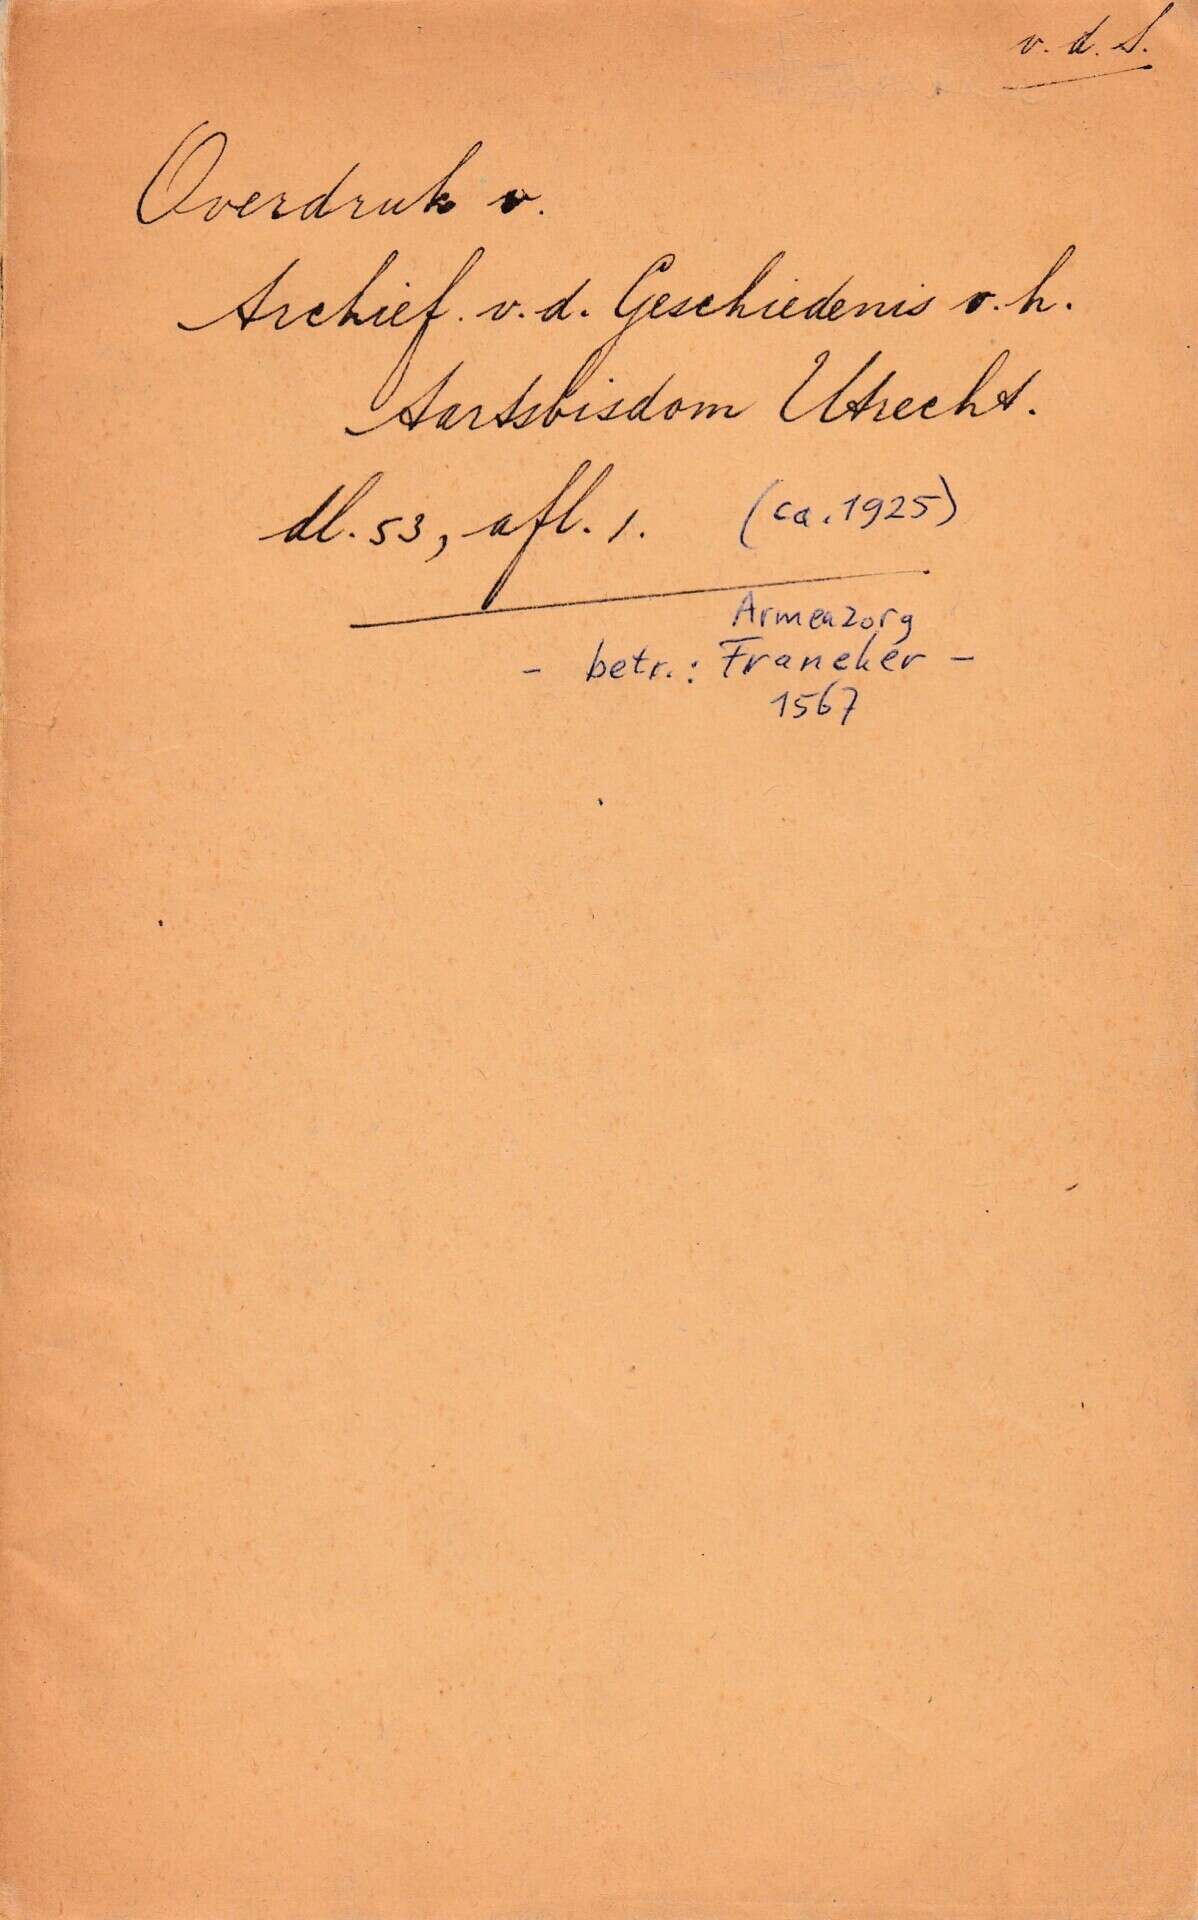 v. d. S.
Overdruk v.
Archief. v. d. Geschiedenis v. h.
Aartsbisdom Utrecht.
dl. 53, afl. 1. (ca. 1925)
Armenzorg
- betr.: Franeker -
1567